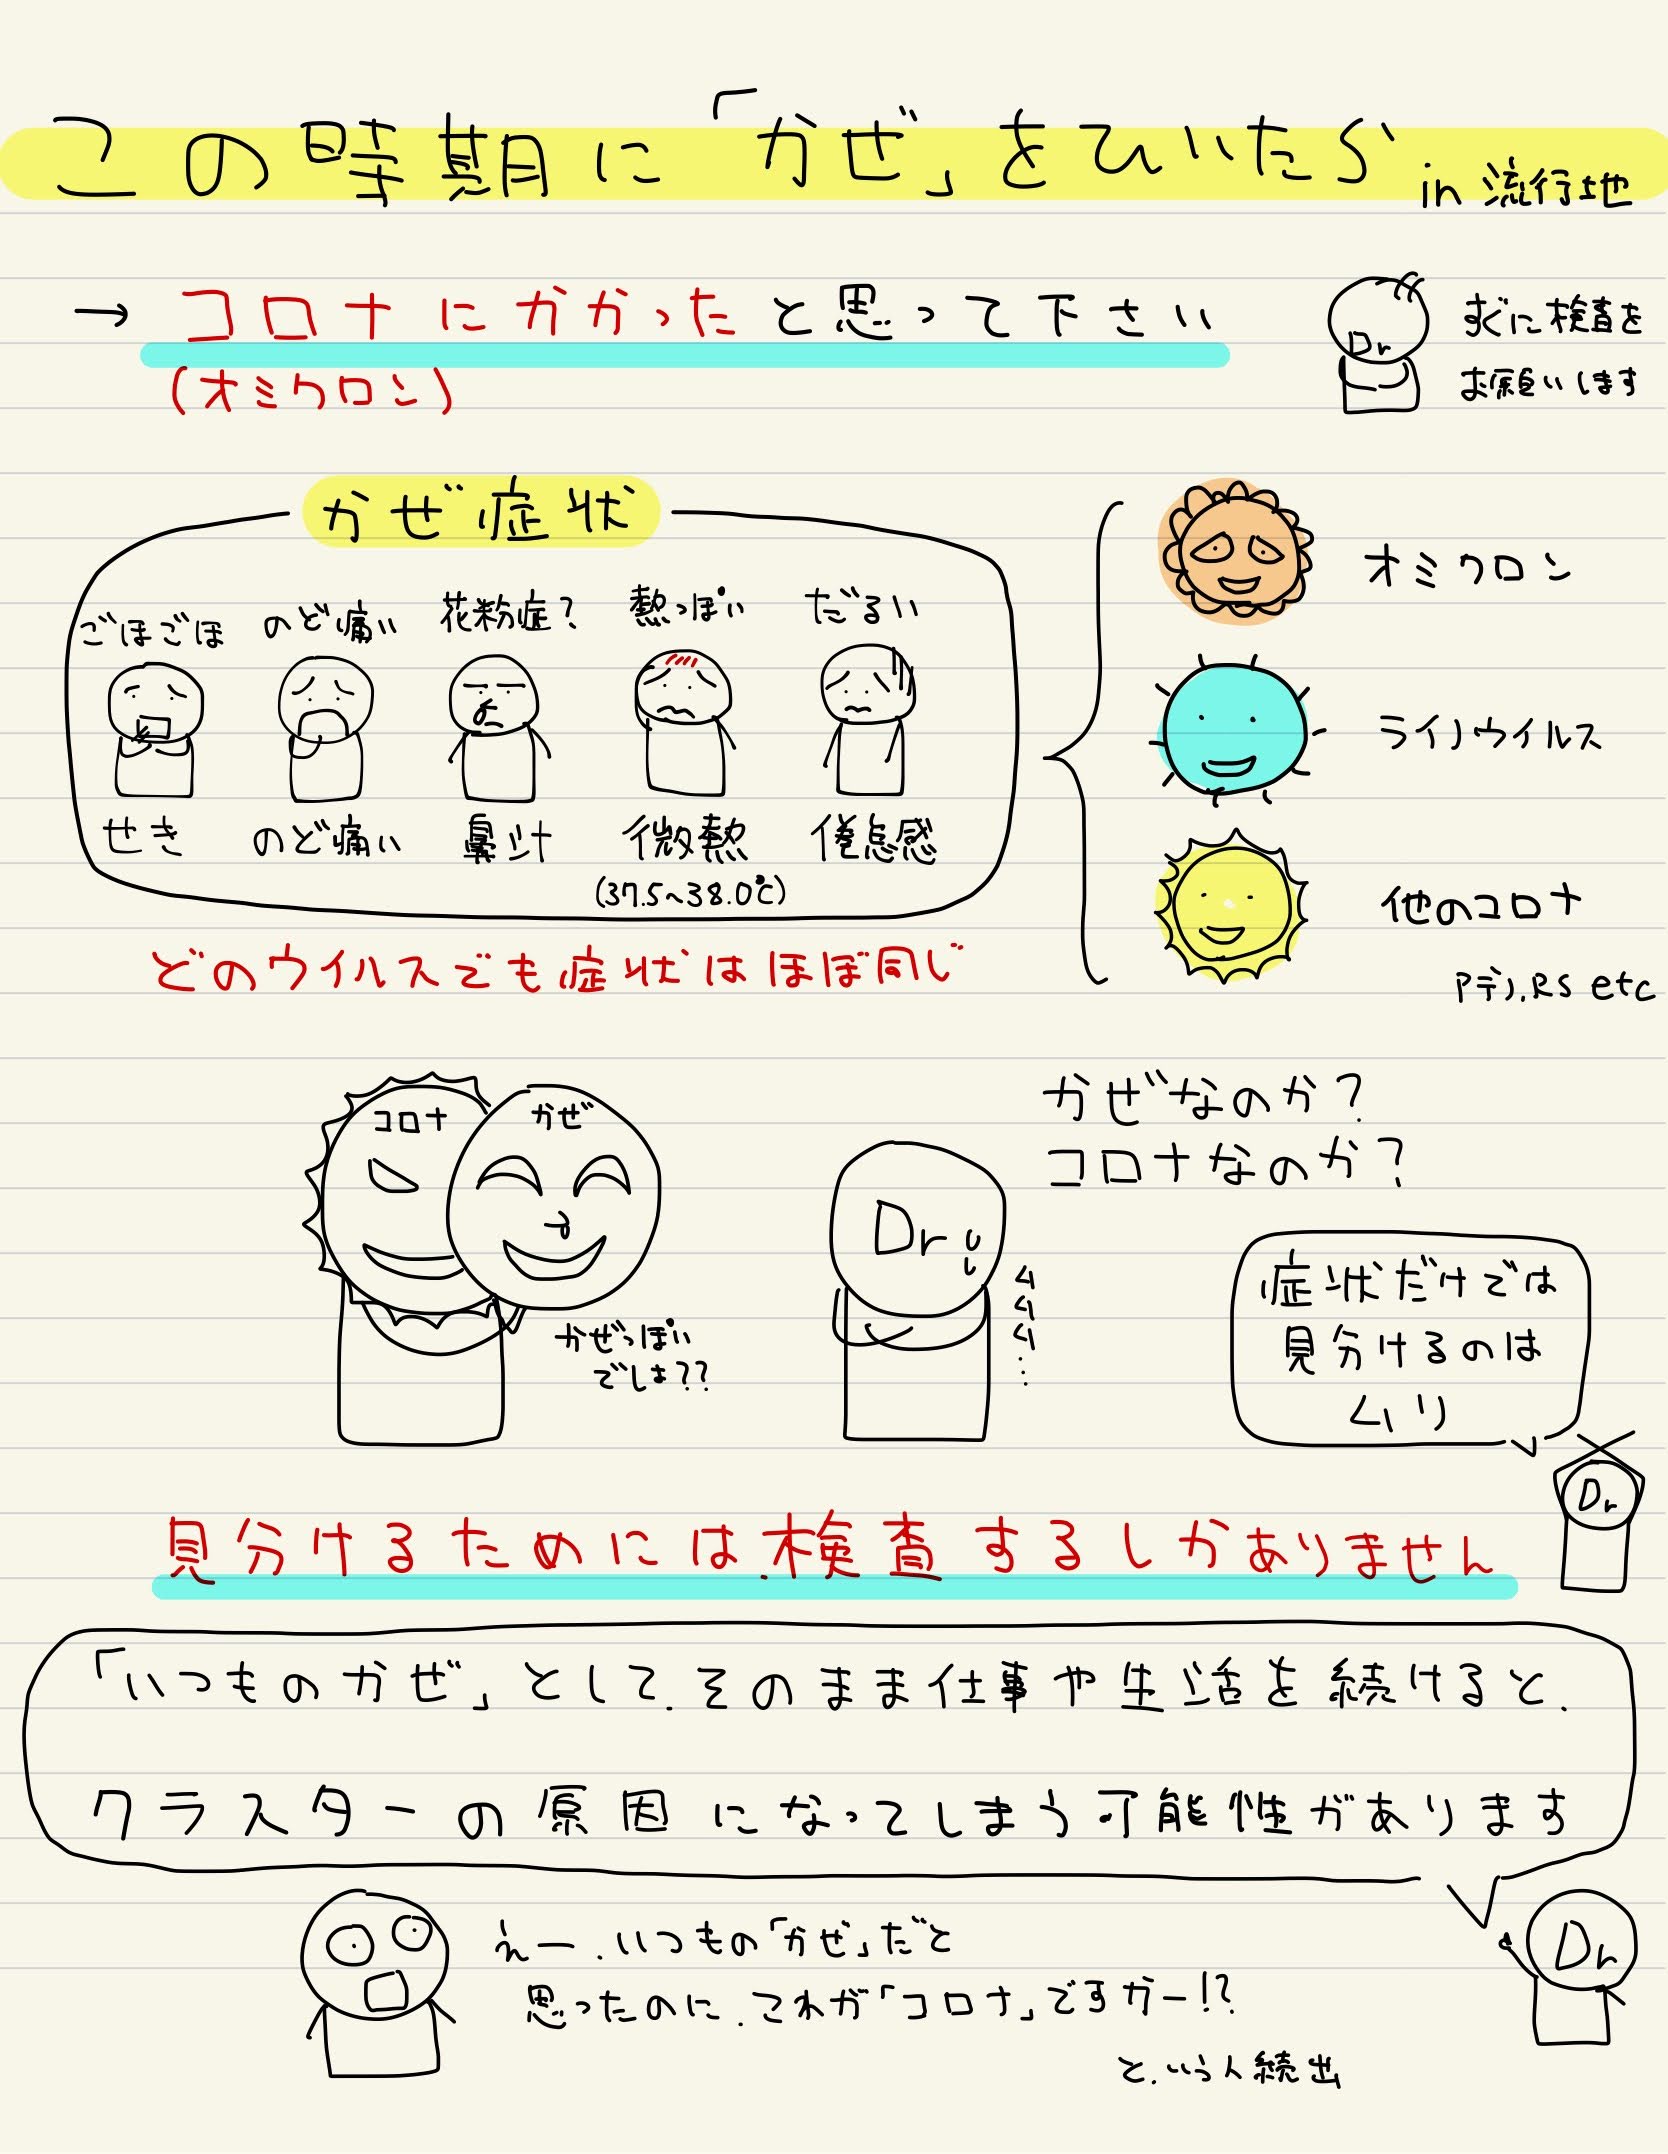 この時期に「かぜ」をひいたら in 流行地
→ コロナにかかったと思って下さい
(オミクロン)
Dr
すぐに検査を
お願いします
かぜ症状
ごほごほ
のど痛い
花粉症?
熱っぽい
だるい
せき
のど痛い
鼻汁
微熱
(37.5~38.0℃)
倦怠感
どのウイルスでも症状はほぼ同じ
オミクロン
ライノウイルス
他のコロナ
アデノ,RS etc
コロナ
かぜ
かぜっぽい
でしょ??
かぜなのか?
コロナなのか?
Dr
ムムム…
症状だけでは
見分けるのは
ムリ
Dr
見分けるためには、検査するしかありません
「いつものかぜ」として、そのまま仕事や生活を続けると、
クラスターの原因になってしまう可能性があります
Dr
えー、いつもの「かぜ」だと
思ったのに、これが「コロナ」ですかー!?
と、いう人続出